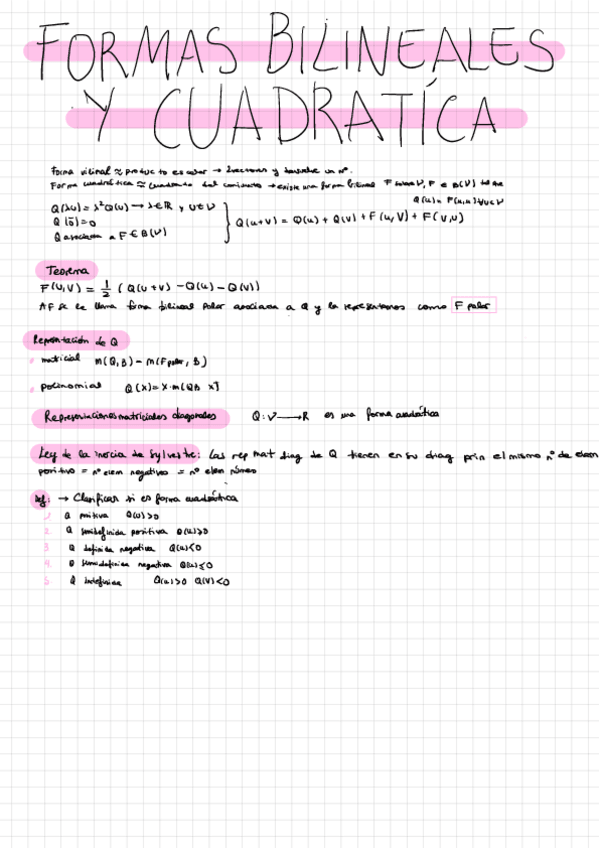 FORMAS BILINEALES
Y CUADRATÍCA
Forma bilinal ≈ producto escalar → 2 vectores y devuelve un nº.
Forma cuadrática ≈ cuadrado del → existe una forma bilineal F sobre V, F ∈ B(V) tq
Q(u) = F(u,u) ∀u∈V
Q(λu) = λ²Q(u) → λ∈R y u∈V
Q(0̄)=0
Q asociada a F ∈ B(V)
Q(u+v) = Q(u) + Q(v) + F(u,v) + F(v,u)
Teorema
F(u,v) = 1/2 (Q(u+v) - Q(u) - Q(v))
A F se le llama forma bilineal polar asociada a Q y la representamos como F polar
Representación de Q
matricial m(Q,B) = m(F polar, B)
polinomial Q(x) = x·m(QB xT
Representaciones matriciales diagonales Q: V → R es una forma cuadrática
Ley de la inercia de Sylvestre: Las rep mat diag de Q tienen en su diag prin el mismo nº de elem
positivo = nº elem negativos = nº elem
Def: → Clasificar si es forma cuadrática
1. Q positiva Q(u)>0
2. Q semidefinida positiva Q(u)≥0
3. Q definida negativa Q(u)<0
4. Q semidefinida negativa Q(u)≤0
5. Q indefinida Q(u)>0 Q(v)<0